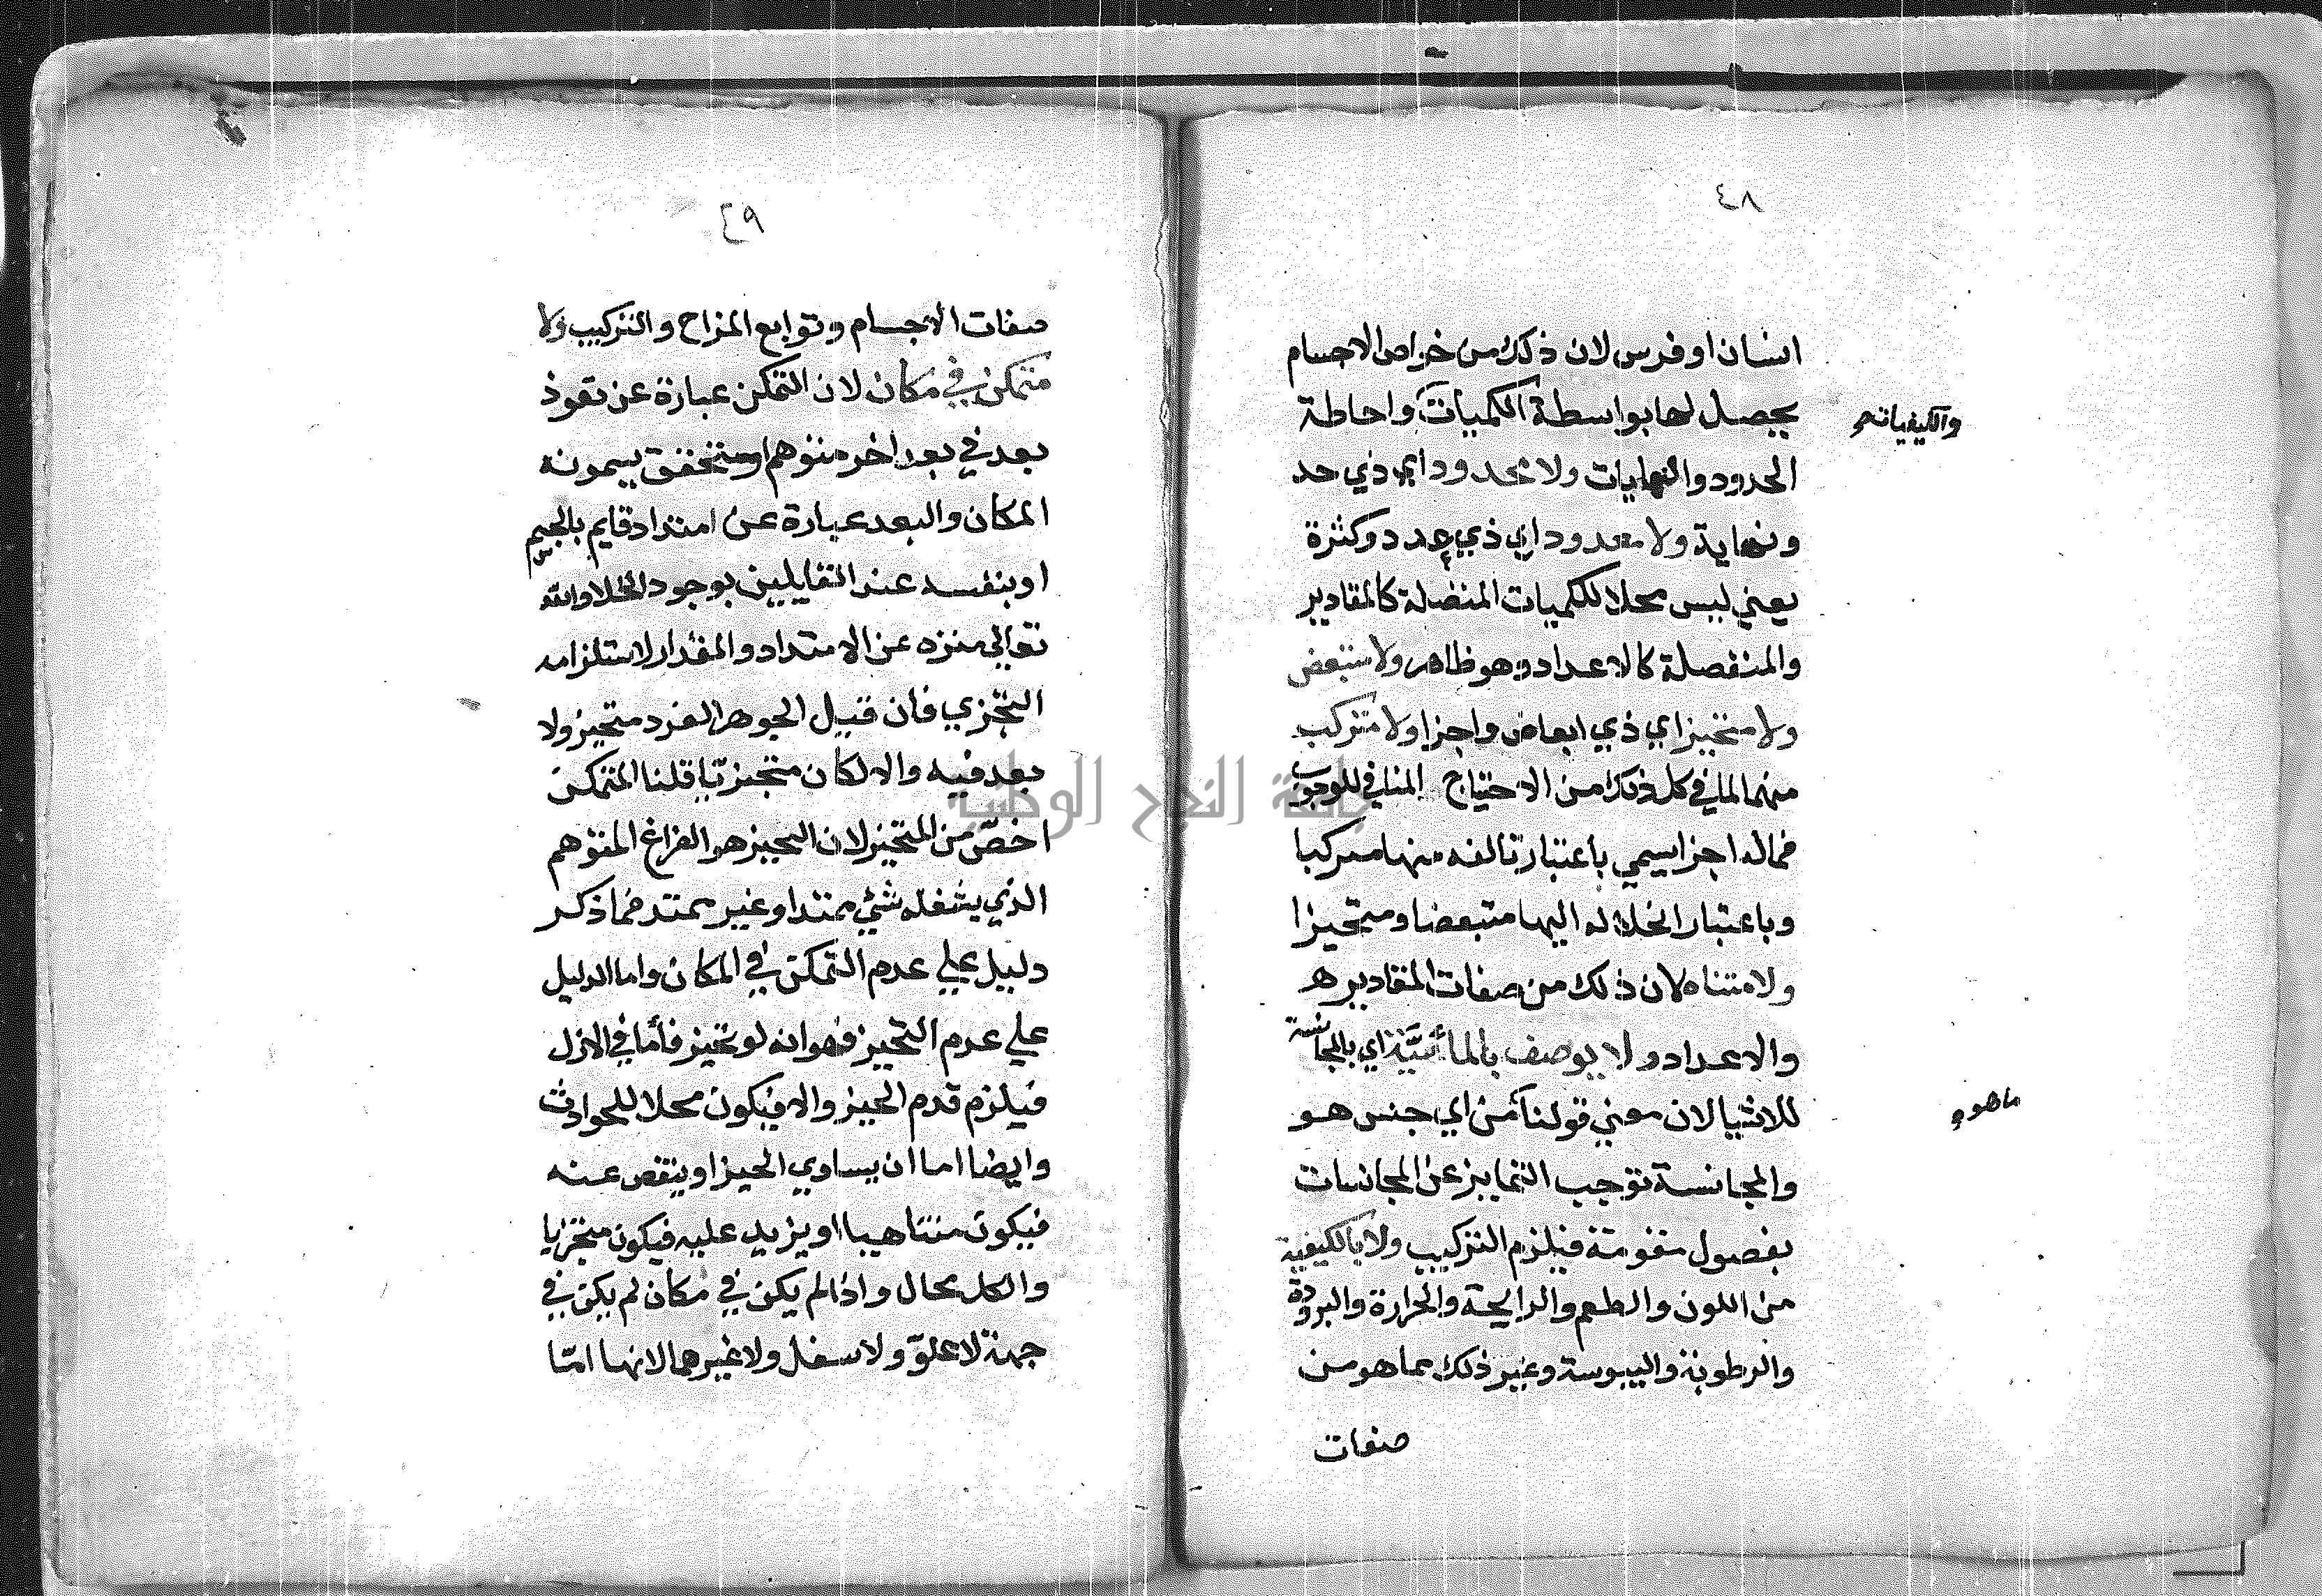 ٤٨
انسان او فرس لان ذلك من خواص الاجسام
يحصل لها بواسطة الكميات واحاطة
والكيفيات صح
الحدود والنهايات ولا محدود اي ذي حد
ونهاية ولا معدود اي ذي عدد وكثرة
يعني ليس محلا للكميات المتصلة كالمقادير
والمنفصلة كالاعداد وهو ظاهر ولا متبعض
ولا متحيز اي ذي ابعاض واجزا ولا متركب
منهما لما في كل ذلك من الاحتياج المنافي للوجوب
فماله اجزا يسمي باعتبار تالفه منها مركبا
وباعتبار انحلاله اليها متبعضا ومتحيزا
ولا متناه لان ذلك من صفات المقادير
والاعداد ولا يوصف بالمائية اي بالمجانسة
للاشيا لان معني قولنا من اي جنس هو
ما هو
والمجانسة توجب التمايز عن المجانسات
بفصول مقومة فيلزم التركيب ولا بالكيفية
من اللون والطعم والرايحة والحرارة والبرودة
والرطوبة واليبوسة وغير ذلك مما هو من
صفات
٤٩
صفات الاجسام وتوابع المزاج والتركيب ولا
متمكن في مكان لان التمكن عبارة عن نفوذ
بعد في بعد اخر متوهم او متحقق يسمونه
المكان والبعد عبارة عن امتداد قايم بالجسم
او بنفسه عند القايلين بوجود الخلا والله
تعالي منزه عن الامتداد والمقدار لاستلزامه
التجزي فان قيل الجوهر الفرد متحيز ولا
بعد فيه والا لكان متجزيا قلنا المتمكن
اخصّ من المتحيز لان الحيز هو الفراغ المتوهم
الذي يشغله شيْ ممتد او غير ممتد فما ذكر
دليل علي عدم التمكن في المكان واما الدليل
علي عدم التحيز فهو انه لو تحيز فأما في الازل
فيلزم قدم الحيز والا فيكون محلا للحوادث
وايضا اما ان يساوي الحيز او ينقص عنه
فيكون متناهيا او يزيد عليه فيكون متجزيا
والكل محال واذا لم يكن في مكان لم يكن في
جهة لا علوّ ولا سفل ولا غيرهما لانها امّا
جامعة النجاح الوطنية